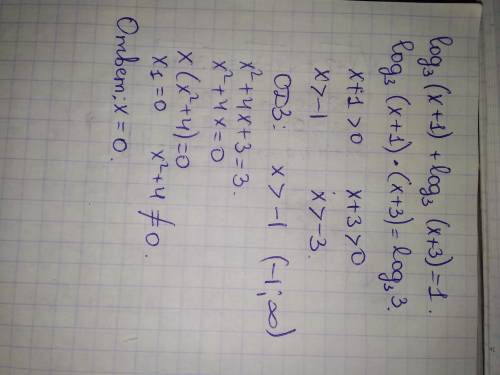 log₃ (x+1) + log₃ (x+3) = 1.
log₃ (x+1) • (x+3) = log₃ 3.
x+1>0 x+3>0
x>-1 x>-3.
ОДЗ: x>-1 (-1; ∞)
x²+4x+3=3.
x²+4x=0
x(x²+4)=0
x₁=0 x²+4≠0.
Ответ: x=0.